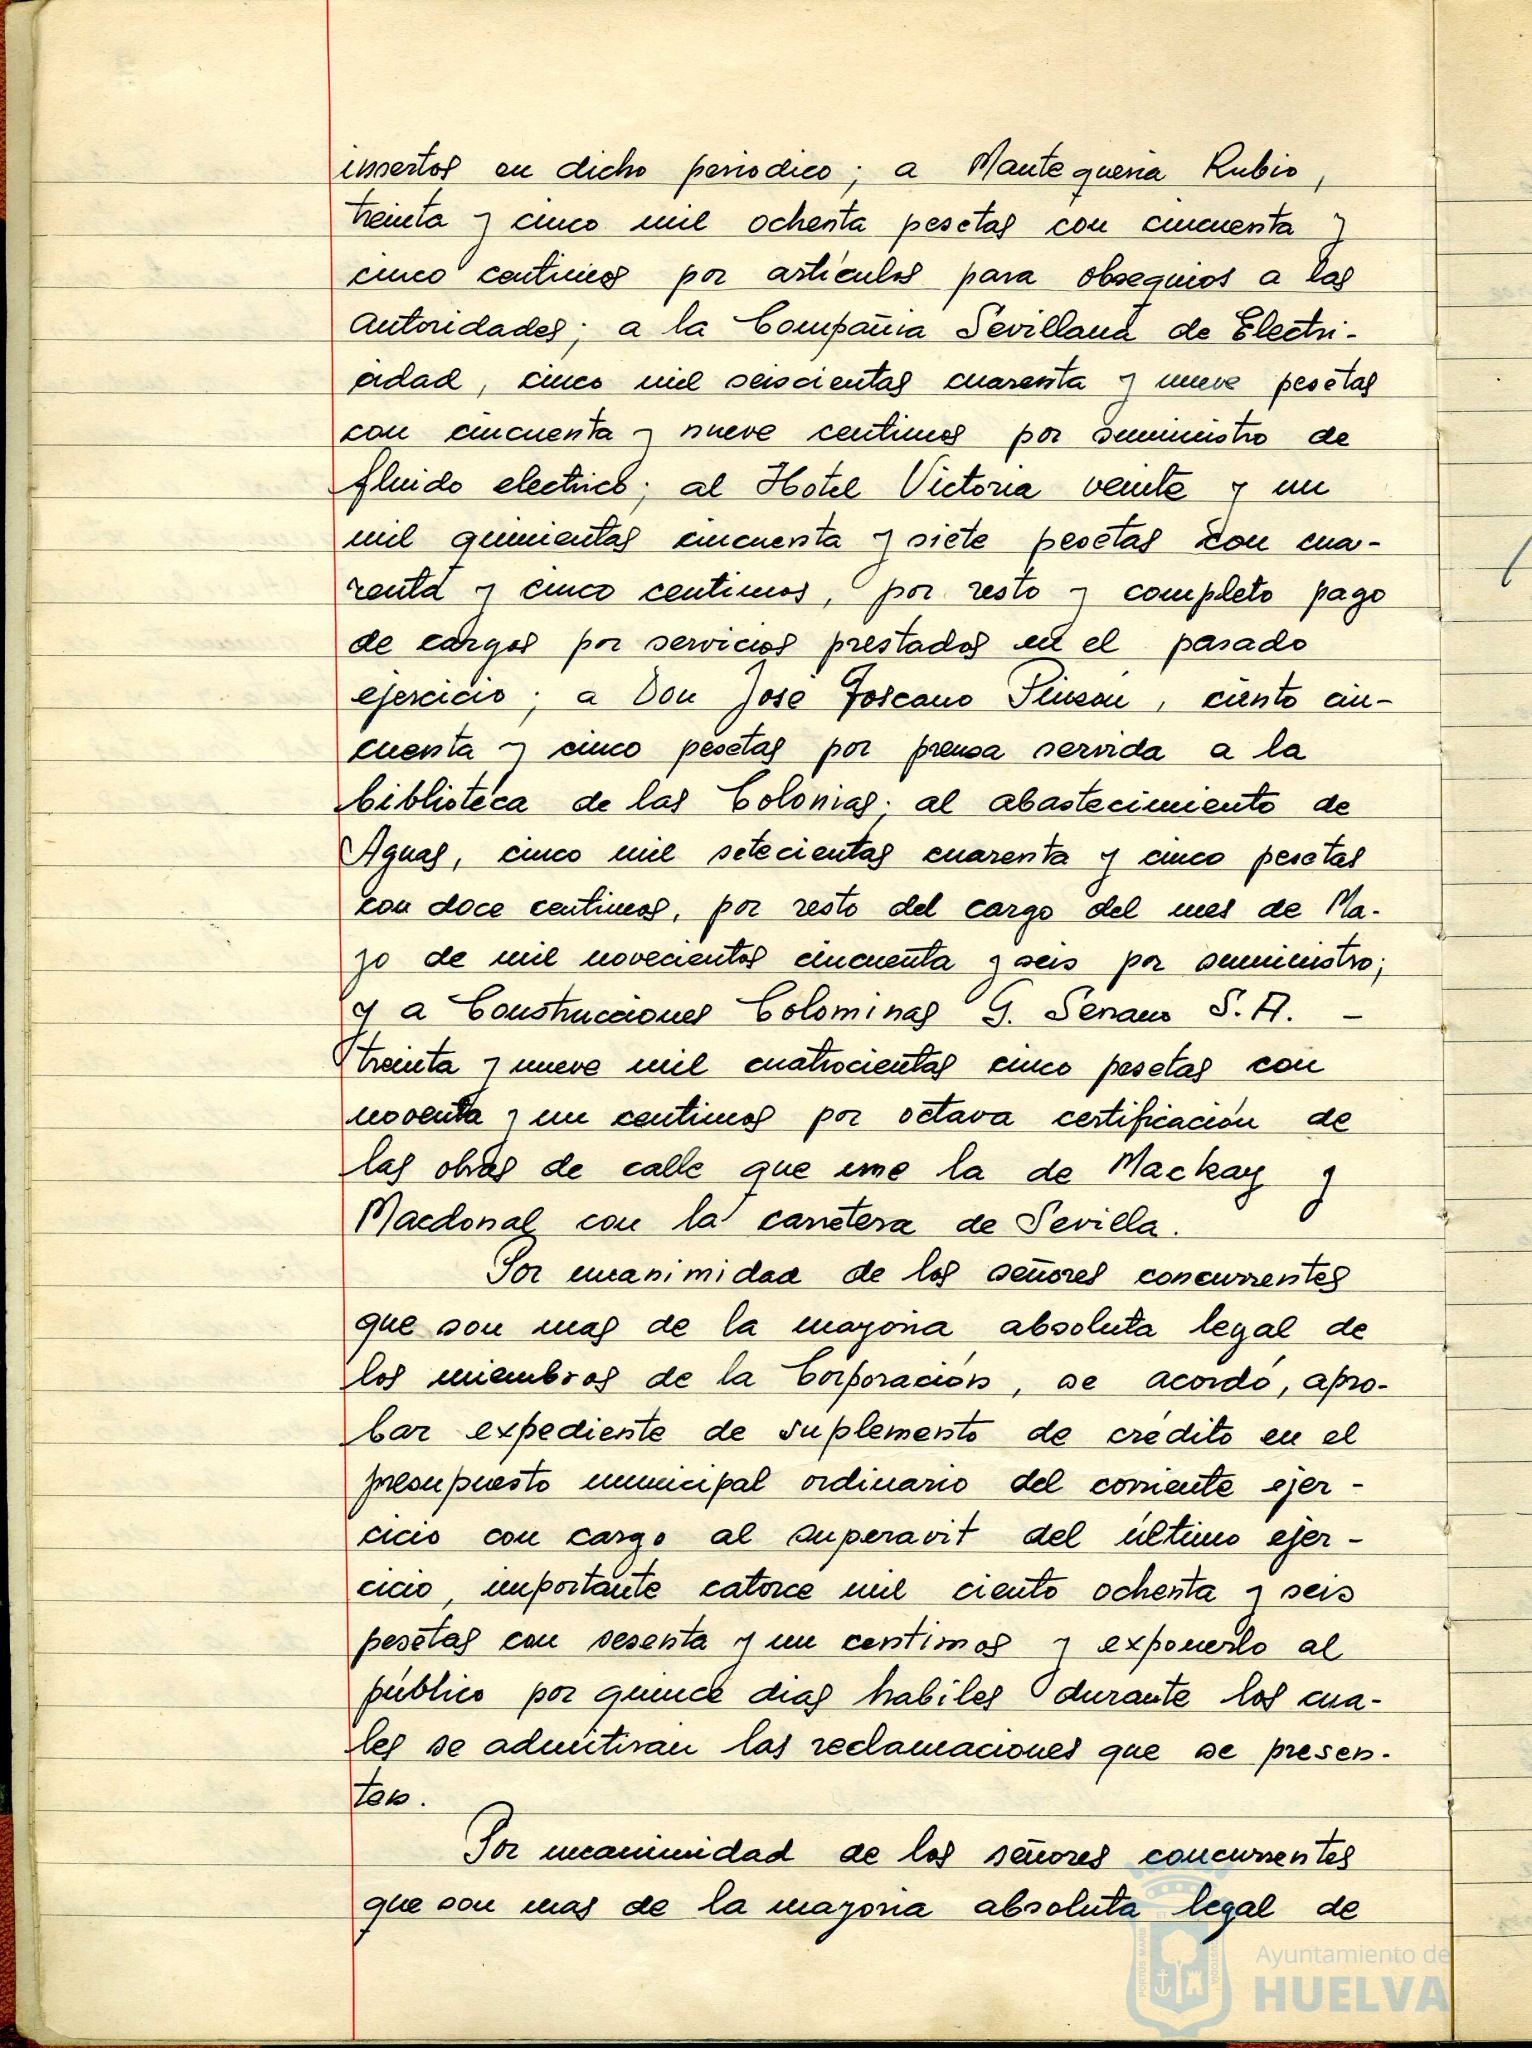 insertos en dicho periodico; a Mantequeria Rubio,
treinta y cinco mil ochenta pesetas con cincuenta y
cinco centimos por artículos para obsequios a las
Autoridades; a la Compañia Sevillana de Electri-
cidad, cinco mil seiscientas cuarenta y nueve pesetas
con cincuenta y nueve centimos por suministro de
fluido electrico; al Hotel Victoria veinte y un
mil quinientas cincuenta y siete pesetas con cua-
renta y cinco centimos, por resto y completo pago
de cargos por servicios prestados en el pasado
ejercicio; a Don José Toscano Pinzón, ciento cin-
cuenta y cinco pesetas por prensa servida a la
biblioteca de las Colonias; al abastecimiento de
Aguas, cinco mil setecientas cuarenta y cinco pesetas
con doce centimos, por resto del cargo del mes de Ma-
yo de mil novecientos cincuenta y seis por suministro;
y a Construcciones Colominas G. Serrano S.A. -
treinta y nueve mil cuatrocientas cinco pesetas con
noventa y un centimos por octava certificación de
las obras de calle que une la de Mackay y
Macdonal con la carretera de Sevilla.
Por unanimidad de los señores concurrentes
que son mas de la mayoria absoluta legal de
los miembros de la Corporación, se acordó, apro-
bar expediente de suplemento de crédito en el
presupuesto municipal ordinario del corriente ejer-
cicio con cargo al superavit del último ejer-
cicio, importante catorce mil ciento ochenta y seis
pesetas con sesenta y un centimos y exponerlo al
público por quince dias habiles durante los cua-
les se admitiran las reclamaciones que se presen-
ten.
Por unanimidad de los señores concurrentes
que son mas de la mayoria absoluta legal de
Ayuntamiento de
HUELVA